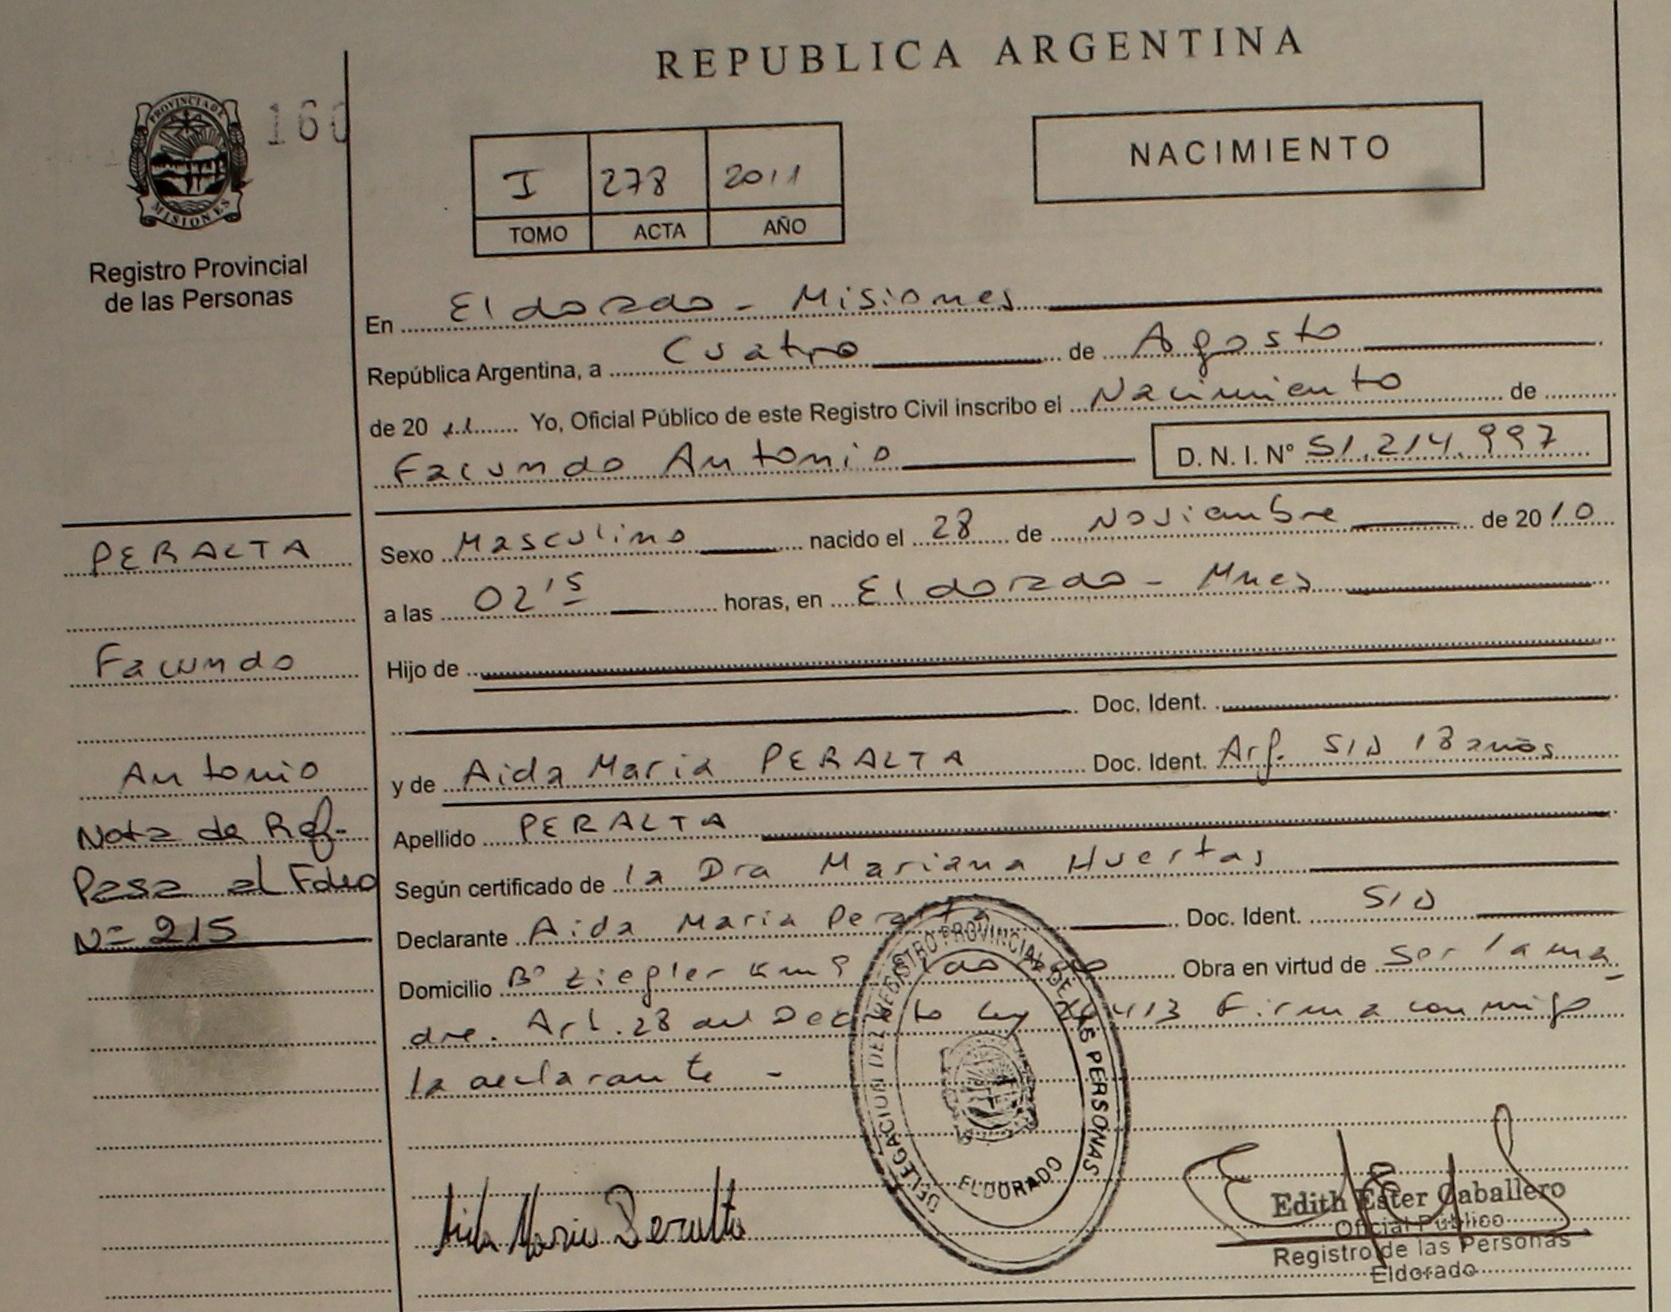 REPUBLICA ARGENTINA
PROVINCIA DE
MISIONES
160
Registro Provincial
de las Personas
I 278 2011
TOMO ACTA AÑO
NACIMIENTO
En Eldorado - Misiones
República Argentina, a Cuatro de Agosto
de 20 11 Yo, Oficial Público de este Registro Civil inscribo el Nacimiento de
Facundo Antonio D. N. I. N° 51.214.997
Sexo Masculino nacido el 28 de Noviembre de 2010
a las 02'5 horas, en Eldorado - Mnes
Hijo de
Doc. Ident.
y de Aida Maria PERALTA Doc. Ident. Arg. S/D 18 años
Apellido PERALTA
Según certificado de la Dra Mariana Huertas
Declarante Aida Maria Peralta Doc. Ident. S/D
Domicilio B° Ziegler Km 9 Eldorado Obra en virtud de ser la ma
dre. Art. 28 del Decreto Ley Firma conmigo
la declarante -
PERALTA
Facundo
Antonio
Nota de Ref-
Pasa al Folio
N= 215
DELEGACION DEL REGISTRO PROVINCIAL DE LAS PERSONAS
ELDORADO
Aida Maria Peralta
Edith Ester Caballero
Oficial Público
Registro de las Personas
Eldorado